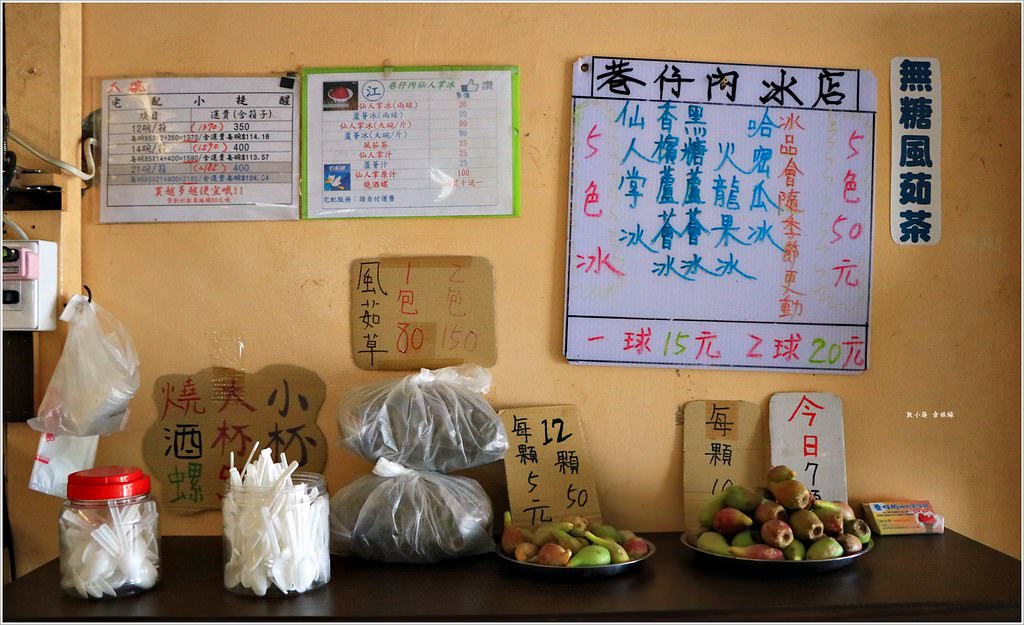 大碗
宅配小提醒
項目 運費(含箱子)
12碗/箱 (1370) 350
14碗/箱 (1590) 400
21碗/箱 400
買越多越便宜哦!!
巷仔內仙人掌冰 讚
江
售價
仙人掌冰(兩球) 20
蘆薈冰(兩球) 20
仙人掌冰(大碗/斤) 90
蘆薈冰(大碗/斤) 90
風茹茶 25
仙人掌汁 25
蘆薈汁 25
仙人掌原汁 100
燒酒螺
宅配服務:請自付運費
巷仔內冰店
5色冰
仙人掌冰
香檳蘆薈冰
黑糖蘆薈冰
火龍果冰
哈密瓜冰
冰品會隨季節更動
5色50元
一球15元 2球20元
無糖風茹茶
風茹草
1包80
2包150
燒酒螺
大杯
小杯
每顆5元
12顆50
每顆
今日7
敦小藤 食旅緣